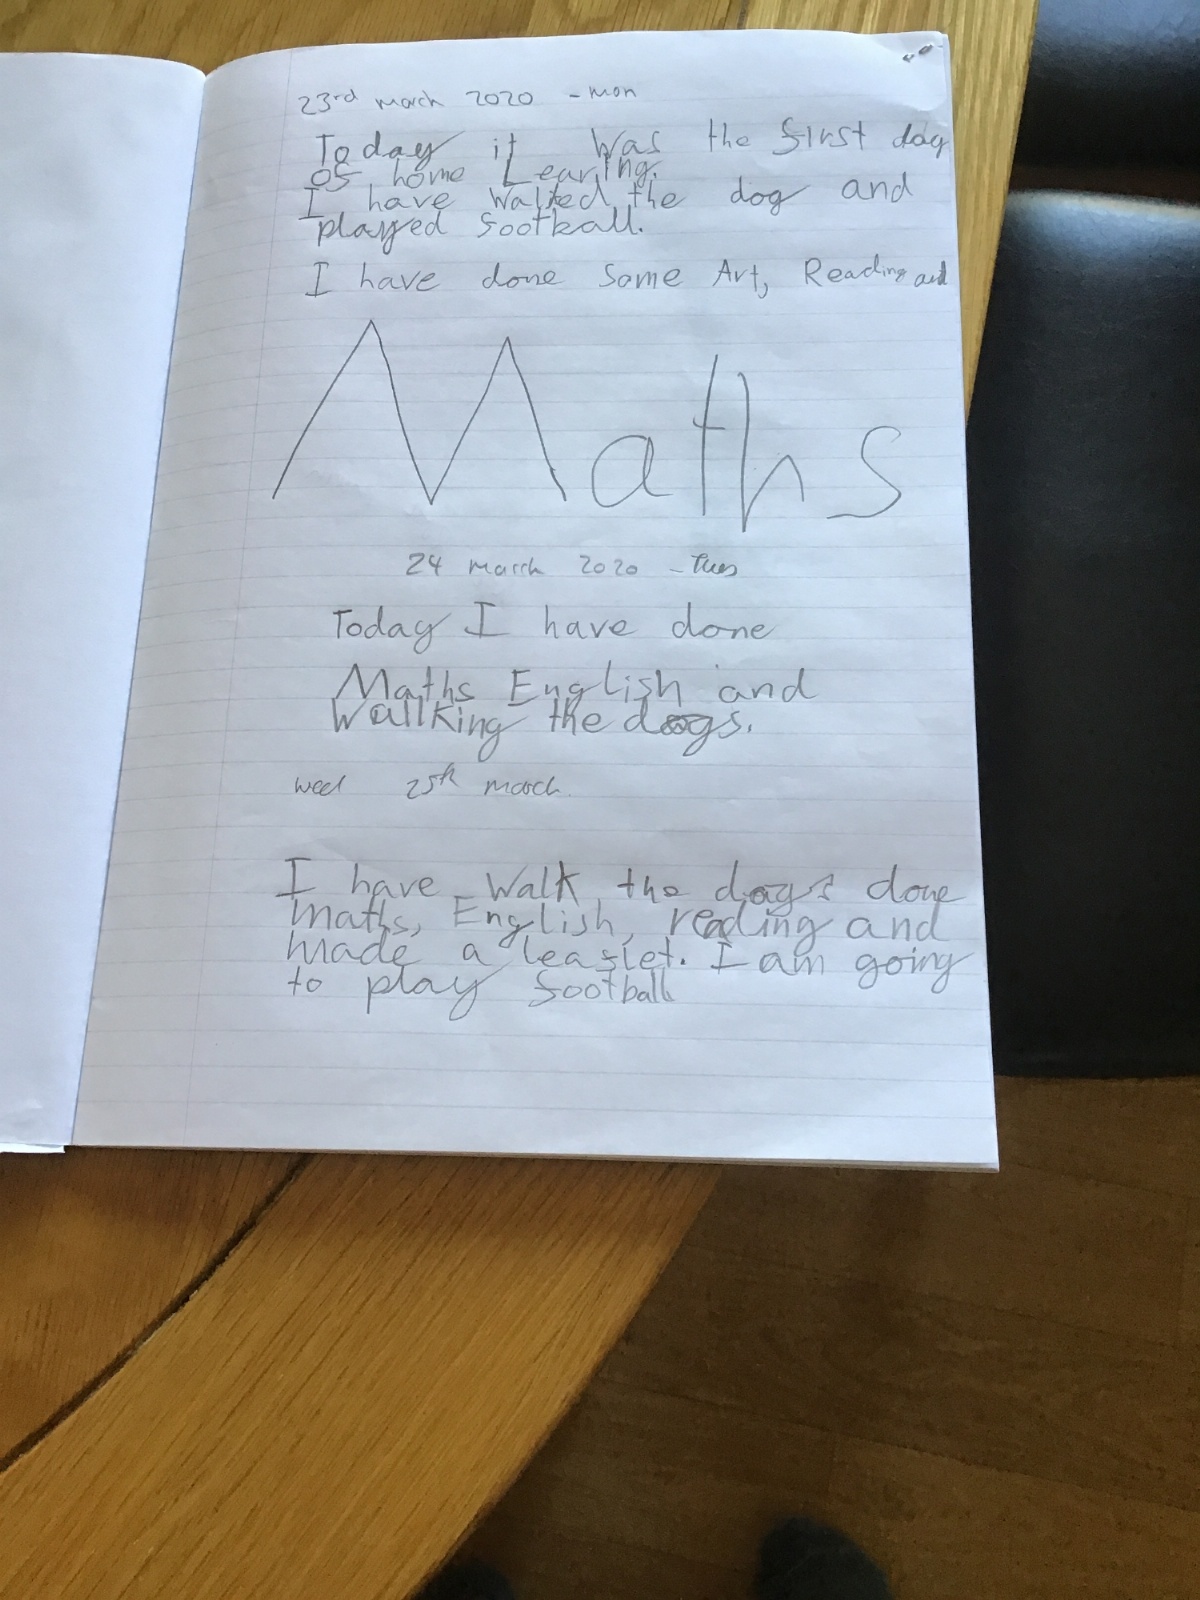 23rd march 2020 - mon
Today it was the first day
of home Learing.
I have walked the dog and
played football.
I have done Some Art, Reading and
Maths
24 march 2020 - Tues
Today I have done
Maths English and
Wallking the dogs.
wed 25th march.
I have walk the dogs done
maths, English, reading and
made a leaflet. I am going
to play football